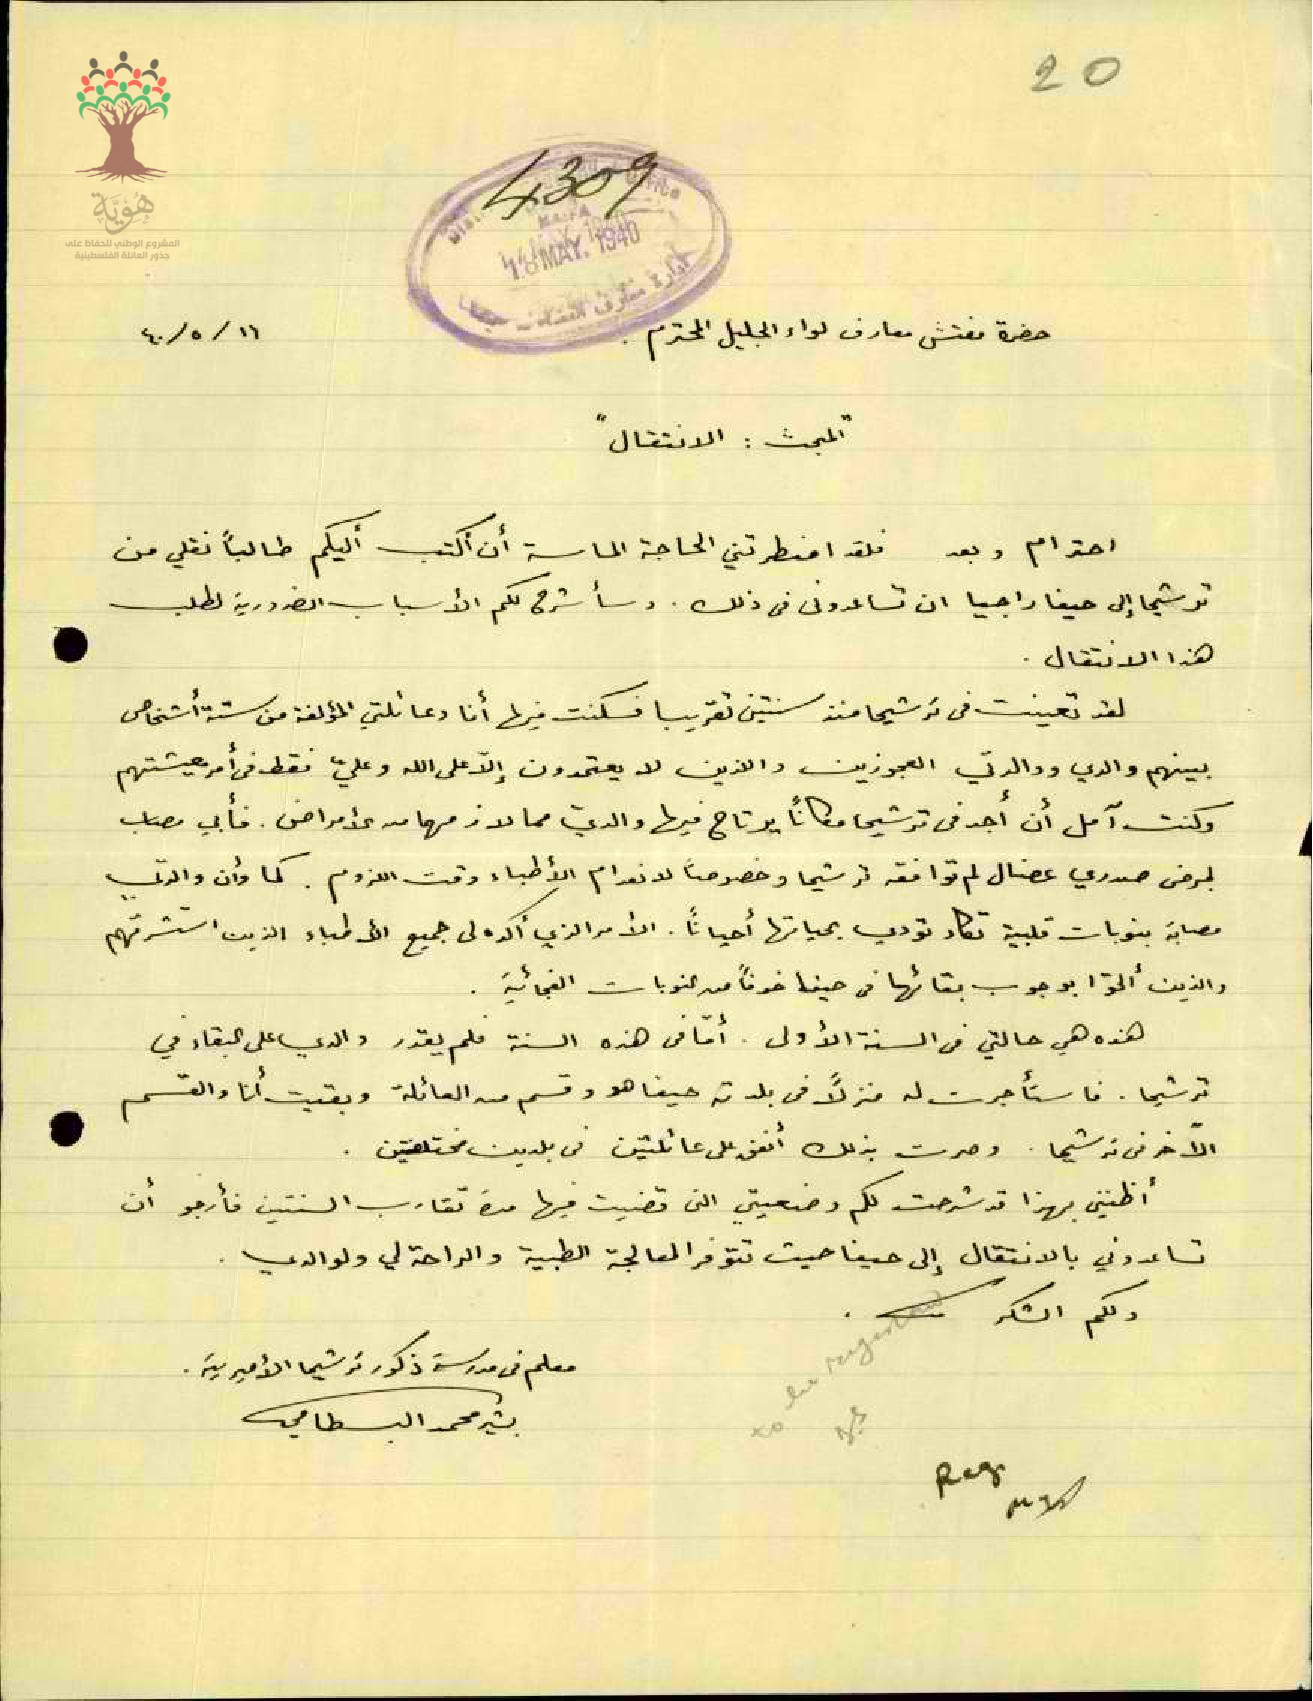 20
هُوِيَّة
المشروع الوطني للحفاظ على
جذور العائلة الفلسطينية
4309
HAIFA
18 MAY. 1940
ادارة معارف
حضرة مفتش معارف لواء الجليل المحترم .
١٦ / ٥ / ٤٠
"المبحث : الانتقال"
احترام وبعد فلقد اضطرتني الحاجة الماسة أن أكتب أليكم طالباً نقلي من
ترشيحا إلى حيفا راجيا ان تساعدوني في ذلك . وسأشرح لكم الأسباب الضرورية لطلب
هذا الانتقال .
لقد تعينت في ترشيحا منذ سنتين تقريبا فسكنت فيها أنا وعائلتي المؤلفة من ستة أشخاص
بينهم والدي ووالدتي العجوزين واللذين لا يعتمدون إلاّ على الله وعليّ فقط في أمر عيشتهم
وكنت آمل أن أجد في ترشيحا مكاناً يرتاح فيها والديّ مما لازمهما من الأمراض . فأبي مصاب
بمرض صدري عضال لم توافقه ترشيحا وخصوصاً لانعدام الأطباء وقت اللزوم . كما وأن والدتي
مصابة بنوبات قلبية تكاد تودي بحياتها أحياناً . الأمر الذي أكده لي جميع الأطباء الذين استشرتهم
والذين ألحوا بوجوب بقائها في حيفا خوفاً من النوبات الفجائية .
هذه هي حالتي في السنة الأولى . أمّا في هذه السنة فلم يقدر والدي على البقاء في
ترشيحا . فاستأجرت له منزلاً في بلدته حيفا هو وقسم من العائلة وبقيت أنا والقسم
الآخر في ترشيحا . وصرت بذلك أنفق على عائلتين في بلدين مختلفتين .
أظنني بهذا قد شرحت لكم وضعيتي التي قضيت فيها مدة تقارب السنتين فأرجو أن
تساعدوني بالانتقال إلى حيفا حيث تتوفر المعالجة الطبية والراحة لي ولوالدي .
ولكم الشكر .
معلم في مدرسة ذكور ترشيحا الأميرية .
بشير محمد البسطامي
to be registered
Reg.